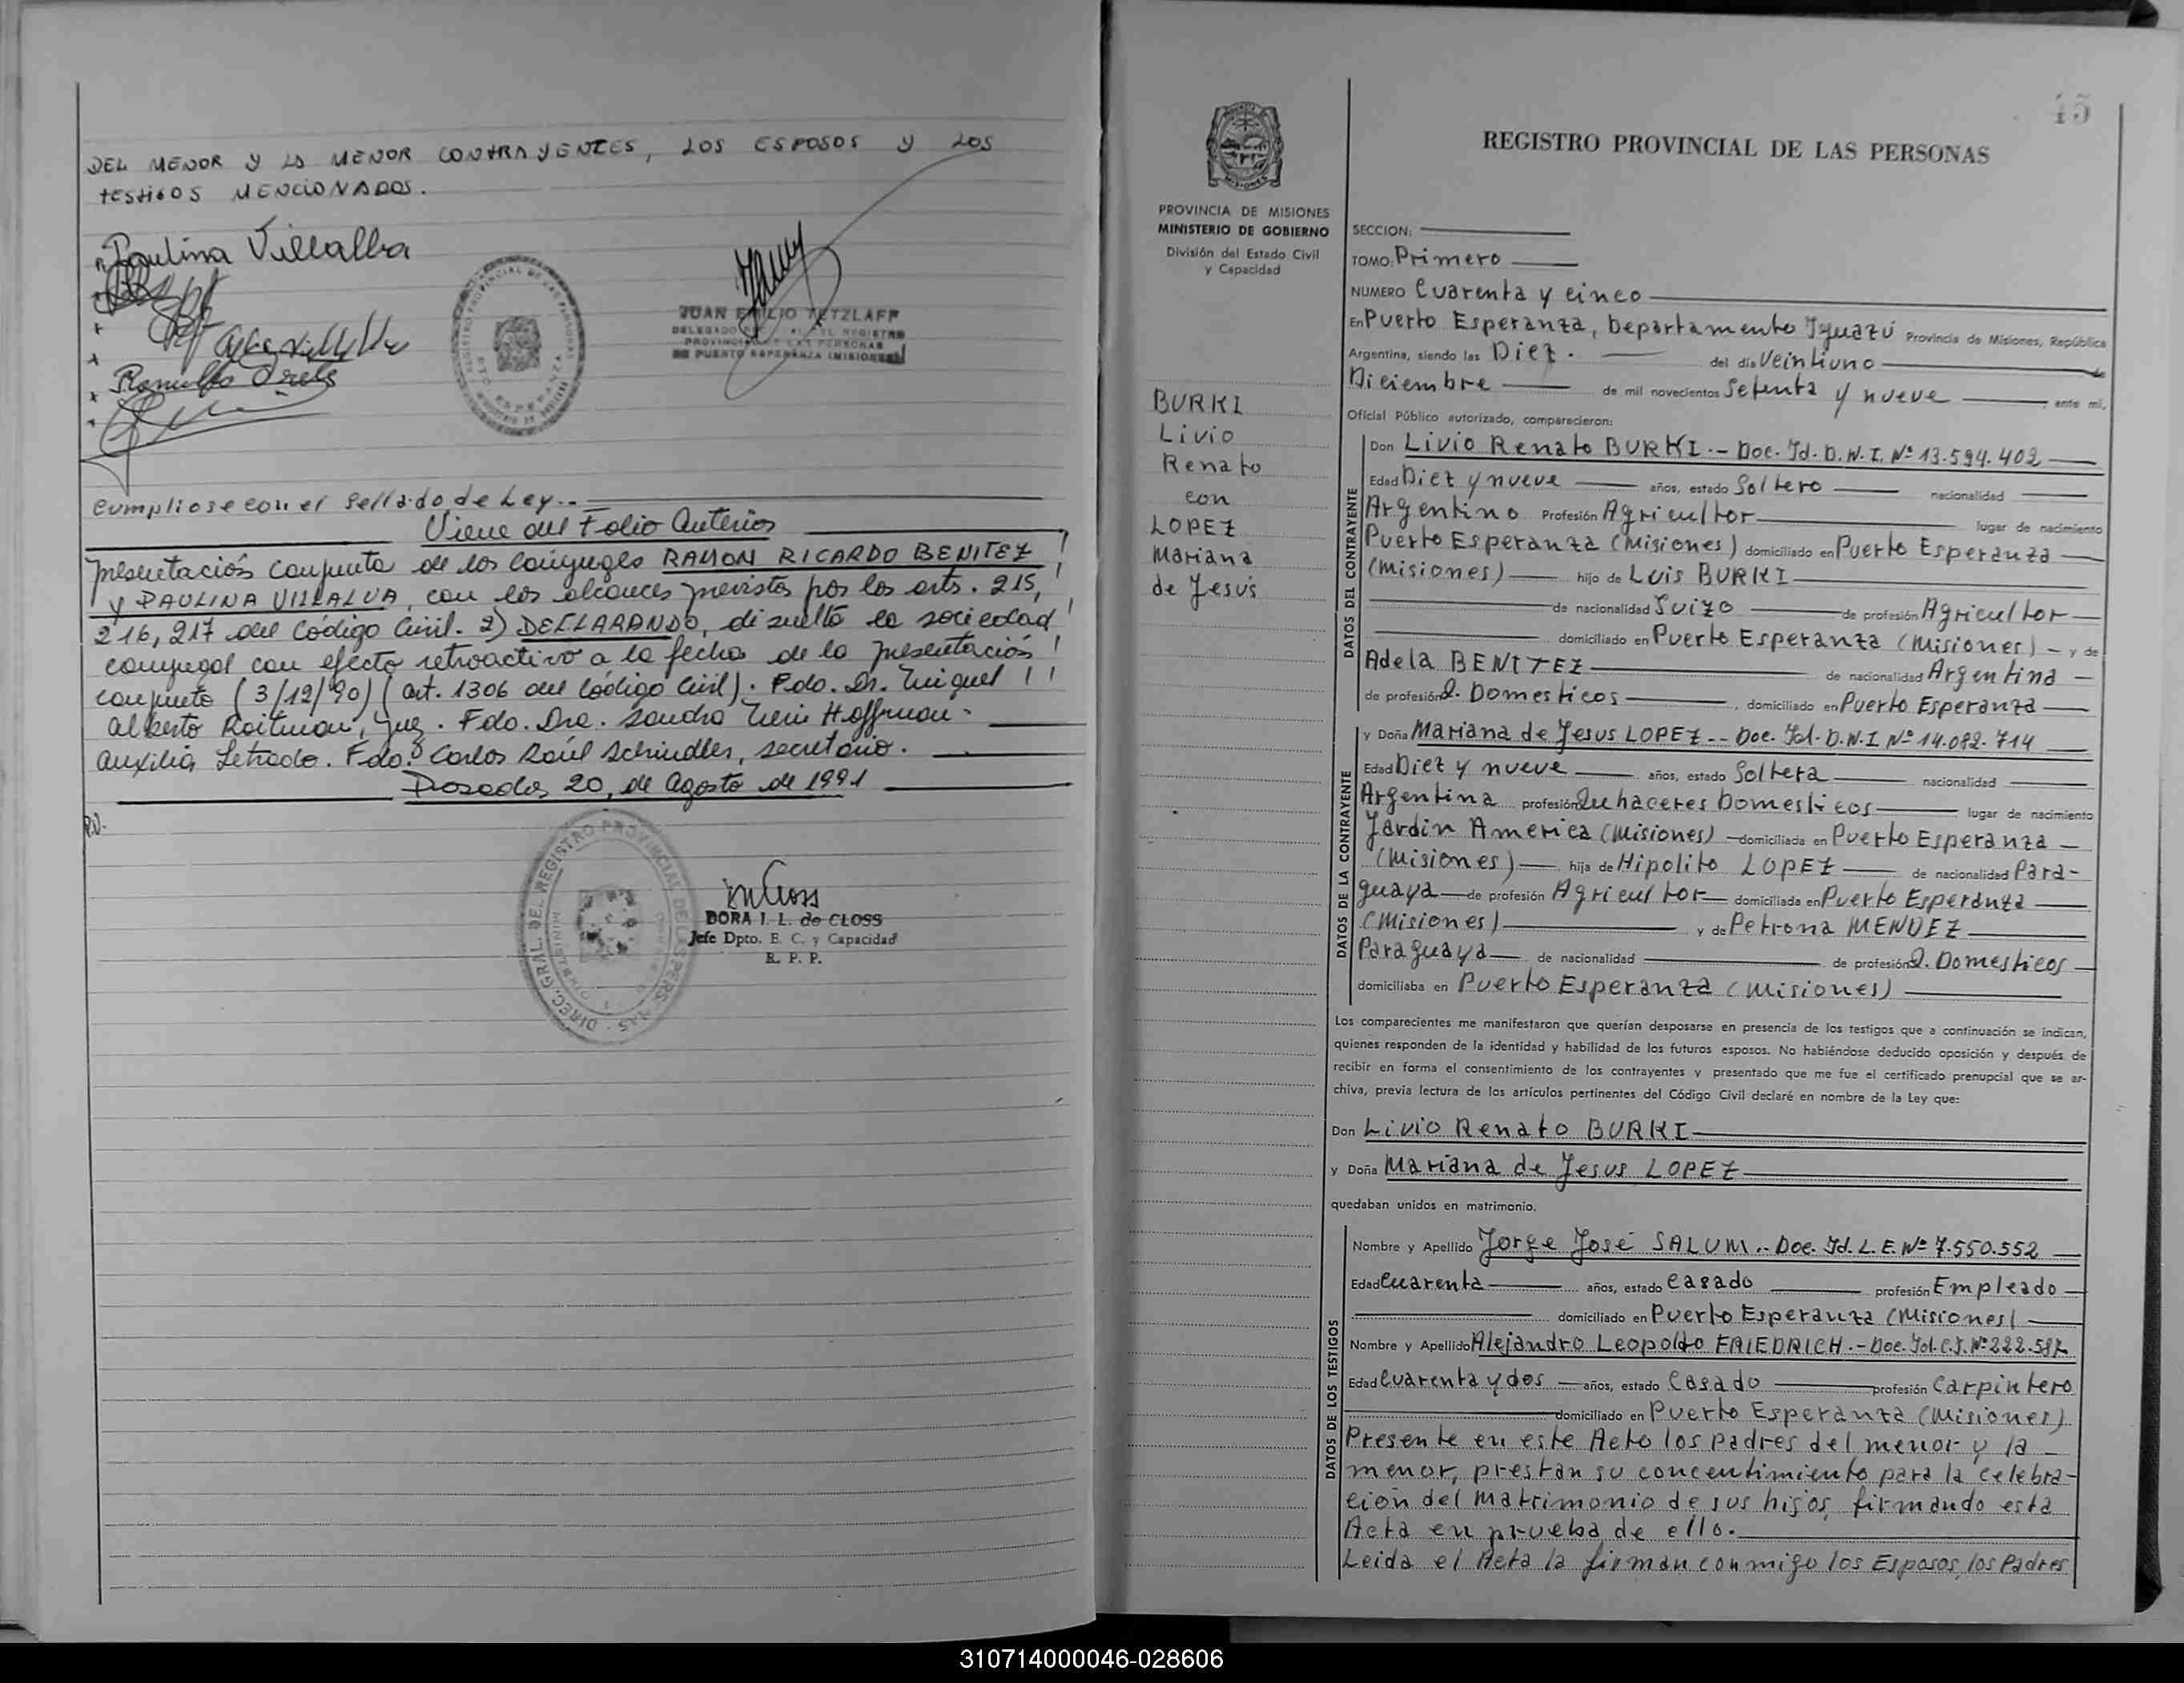 DEL MENOR Y LA MENOR CONTRAYENTES, LOS ESPOSOS Y LOS
TESTIGOS MENCIONADOS.
Paulina Villalba
JUAN EMILIO TETZLAFF
DELEGADO DEL REGISTRO
PROVINCIAL DE LAS PERSONAS
DE PUERTO ESPERANZA (MISIONES)
Cumpliose con el Sellado de Ley.-
Viene del Folio Anterior
presentación conjunta de los cónyuges RAMON RICARDO BENITEZ
y PAULINA VILLALVA, con los alcances previstos por los arts. 215,
216, 217 del Código Civil. 2) DECLARANDO, disuelta la sociedad
conyugal con efecto retroactivo a la fecha de la presentación
conjunta (3/12/90) (art. 1306 del Código Civil). Fdo. Dr. Miguel
Alberto Roitman, Juez. Fdo. Dra. Sandra Hoffman-
Auxiliar Letrado. Fdo. Carlos Raúl Schindler, secretario.
Posadas 20, de Agosto de 1991
DORA I. L. de CLOSS
Jefe Dpto. E. C. y Capacidad
R. P. P.
45
REGISTRO PROVINCIAL DE LAS PERSONAS
MISIONES
PROVINCIA DE MISIONES
MINISTERIO DE GOBIERNO
División del Estado Civil
y Capacidad
BURKI
Livio
Renato
con
LOPEZ
Mariana
de Jesús
SECCION:
TOMO: Primero
NUMERO Cuarenta y cinco
En Puerto Esperanza, Departamento Iguazú Provincia de Misiones, República
Argentina, siendo las Diez. del día Veintiuno de
Diciembre de mil novecientos Setenta y nueve ante mi,
Oficial Público autorizado, comparecieron:
DATOS DEL CONTRAYENTE
Don Livio Renato BURKI.- Doc. Id. D.N.I. Nº 13.594.402
Edad Diez y nueve años, estado Soltero nacionalidad
Argentino Profesión Agricultor lugar de nacimiento
Puerto Esperanza (Misiones) domiciliado en Puerto Esperanza
(Misiones) hijo de Luis BURKI
de nacionalidad Suizo de profesión Agricultor
domiciliado en Puerto Esperanza (Misiones) y de
Adela BENITEZ de nacionalidad Argentina
de profesión Q. Domesticos, domiciliado en Puerto Esperanza
DATOS DE LA CONTRAYENTE
y Doña Mariana de Jesus LOPEZ.- Doc. Id. D.N.I Nº 14.082.714
Edad Diez y nueve años, estado Soltera nacionalidad
Argentina profesión Quhaceres Domesticos lugar de nacimiento
Jardin America (Misiones) domiciliada en Puerto Esperanza
(Misiones) hija de Hipolito LOPEZ de nacionalidad Para-
guaya de profesión Agricultor domiciliada en Puerto Esperanza
(Misiones) y de Petrona MENDEZ
Paraguaya de nacionalidad de profesión Q. Domesticos
domiciliaba en Puerto Esperanza (Misiones)
Los comparecientes me manifestaron que querían desposarse en presencia de los testigos que a continuación se indican,
quienes responden de la identidad y habilidad de los futuros esposos. No habiéndose deducido oposición y después de
recibir en forma el consentimiento de los contrayentes y presentado que me fue el certificado prenupcial que se ar-
chiva, previa lectura de los artículos pertinentes del Código Civil declaré en nombre de la Ley que:
Don Livio Renato BURKI
y Doña Mariana de Jesus LOPEZ
quedaban unidos en matrimonio.
DATOS DE LOS TESTIGOS
Nombre y Apellido Jorge José SALUM.- Doc. Id. L.E. Nº 7.550.552
Edad Cuarenta años, estado Casado profesión Empleado
domiciliado en Puerto Esperanza (Misiones)
Nombre y Apellido Alejandro Leopoldo FRIEDRICH.- Doc. Id. C.I. Nº 222.587
Edad Cuarenta y dos años, estado Casado profesión Carpintero
domiciliado en Puerto Esperanza (Misiones)
Presente en este Acto los padres del menor y la
menor, prestan su concentimiento para la celebra-
ción del Matrimonio de sus hijos, firmando esta
Acta en prueba de ello.
Leida el Acta la firman conmigo los Esposos, los Padres
310714000046-028606